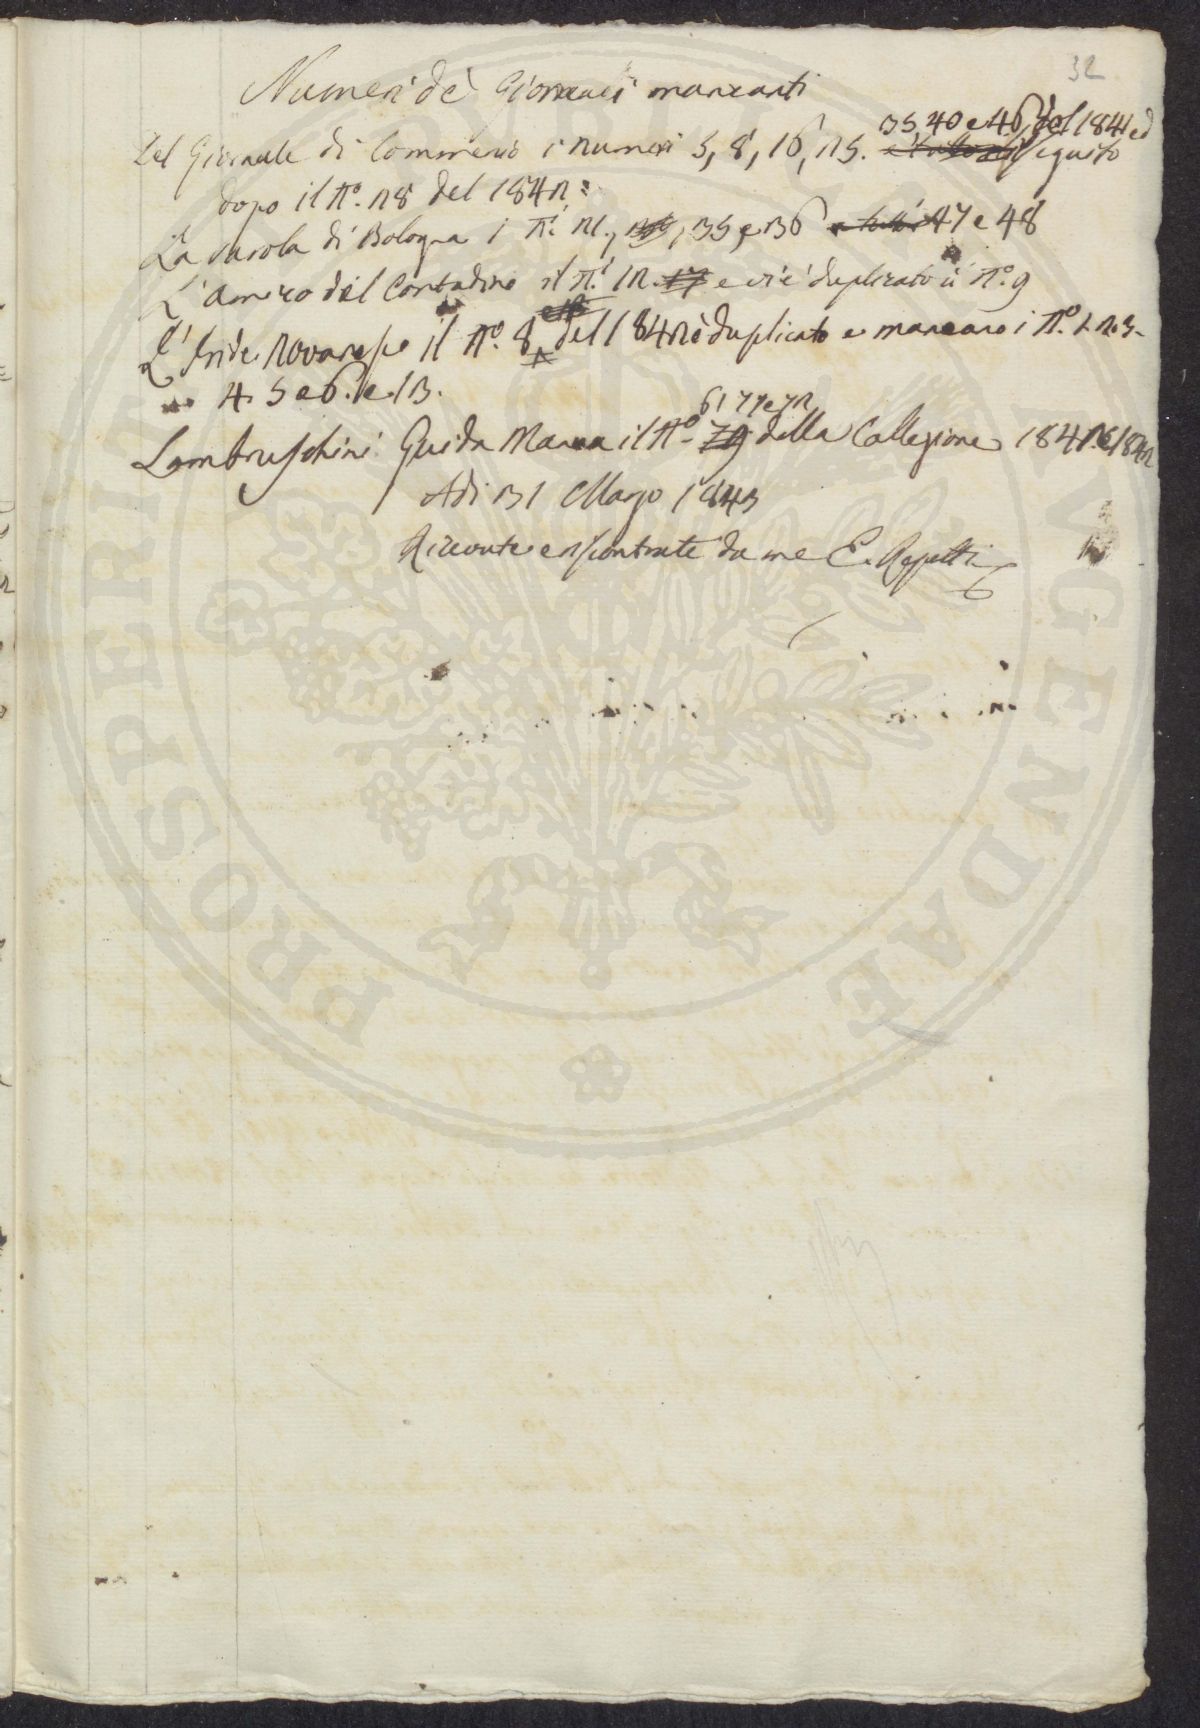 32
Numeri de' Giornali mancanti
Del Giornale di Commercio i numeri 5, 8, 16, 25. 35 40 e 46 del 1841 ed seguito
dopo il N.º 28 del 1842
La Parola di Bologna i N.i 21, 35, e 36 e tutti 47 e 48
L'Amico del Contadino il N.º 12. 17 e vi è duplicato il N.º 9
L'Iride Novarese il N.º 8 del 1842 è duplicato e mancano i N.º 1. 2. 3.
4. 5 e 6. e 13.
Lambruschini Guida Manca il N.º 79 61 77 e 72 della Collezione 1841. e 1842
Adi 31 Marzo 1843
Ricevute e riscontrate da me E. Repetti
PROSPERITATI PUBLICAE AUGENDAE